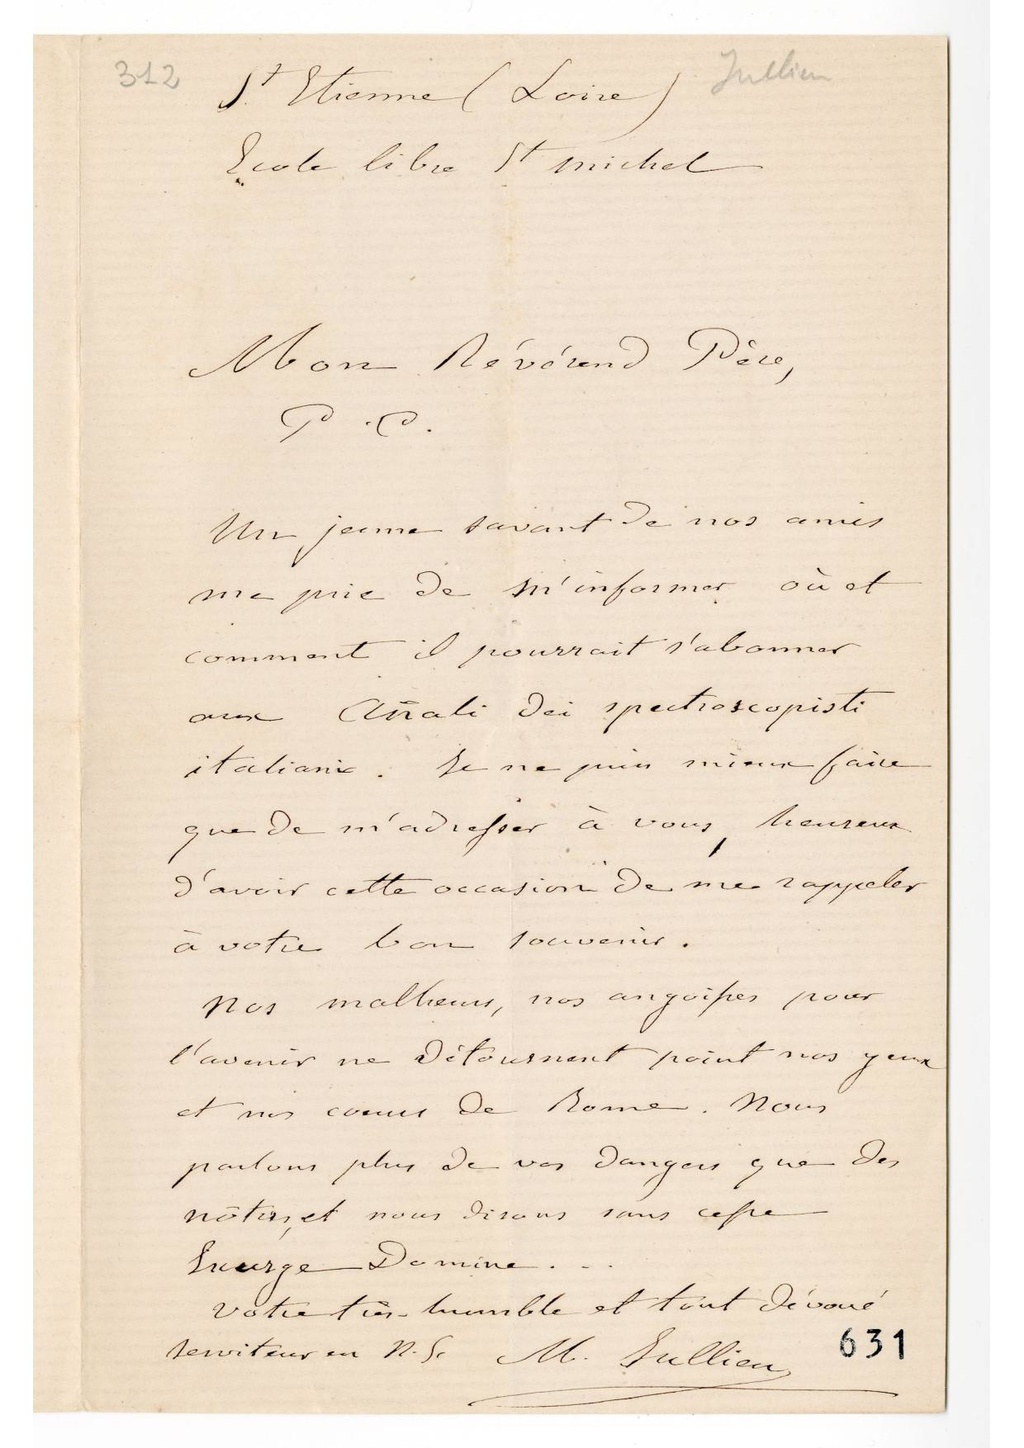 312
Jullien
St Etienne (Loire)
Ecole libre St Michel
Mon Révérend Père,
P. C.
Un jeune savant de nos amis
me prie de m'informer où et
comment il pourrait s'abonner
aux Añali dei spectroscopisti
italiani. Je ne puis mieux faire
que de m'adresser à vous, heureux
d'avoir cette occasion de me rappeler
à votre bon souvenir.
Nos malheurs, nos angoisses pour
l'avenir ne détournent point nos yeux
et nos coeurs de Rome. Nous
parlons plus de vos dangers que des
nôtres, et nous disons sans cesse
Exurge Domine...
Votre très-humble et tout dévoué
serviteur en N.S. M. Jullien
631